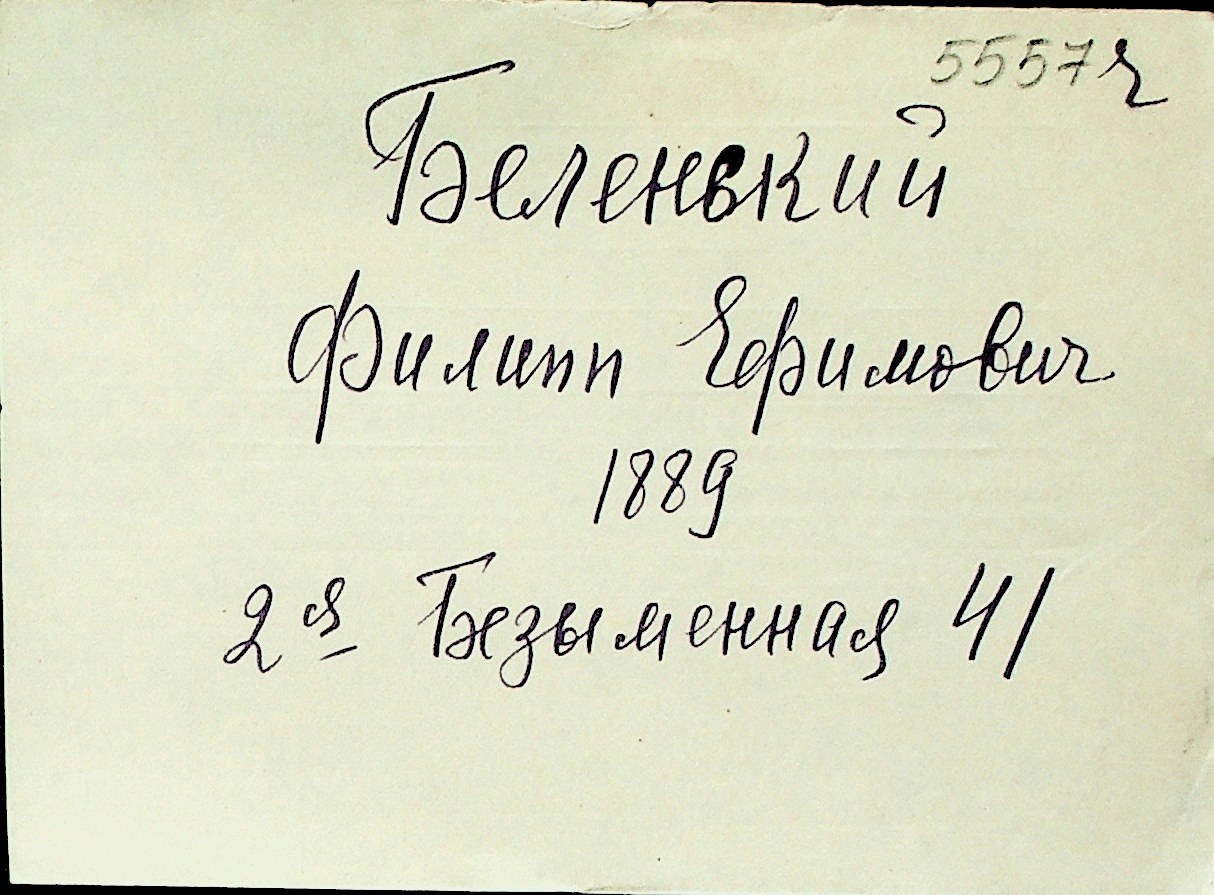 5557 г
Беленький
Филипп Ефимович
1889
2я Безыменная 41